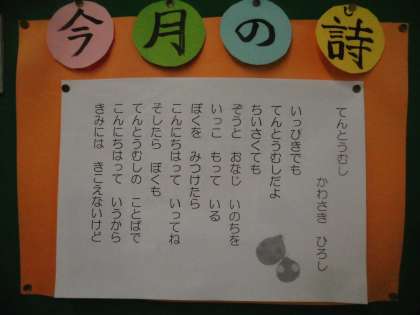 今月の詩
てんとうむし
かわさき ひろし
いっぴきでも
てんとうむしだよ
ちいさくても
ぞうと おなじ いのちを
いっこ もって いる
ぼくを みつけたら
こんにちはって いってね
そしたら ぼくも
てんとうむしの ことばで
こんにちはって いうから
きみには きこえないけど